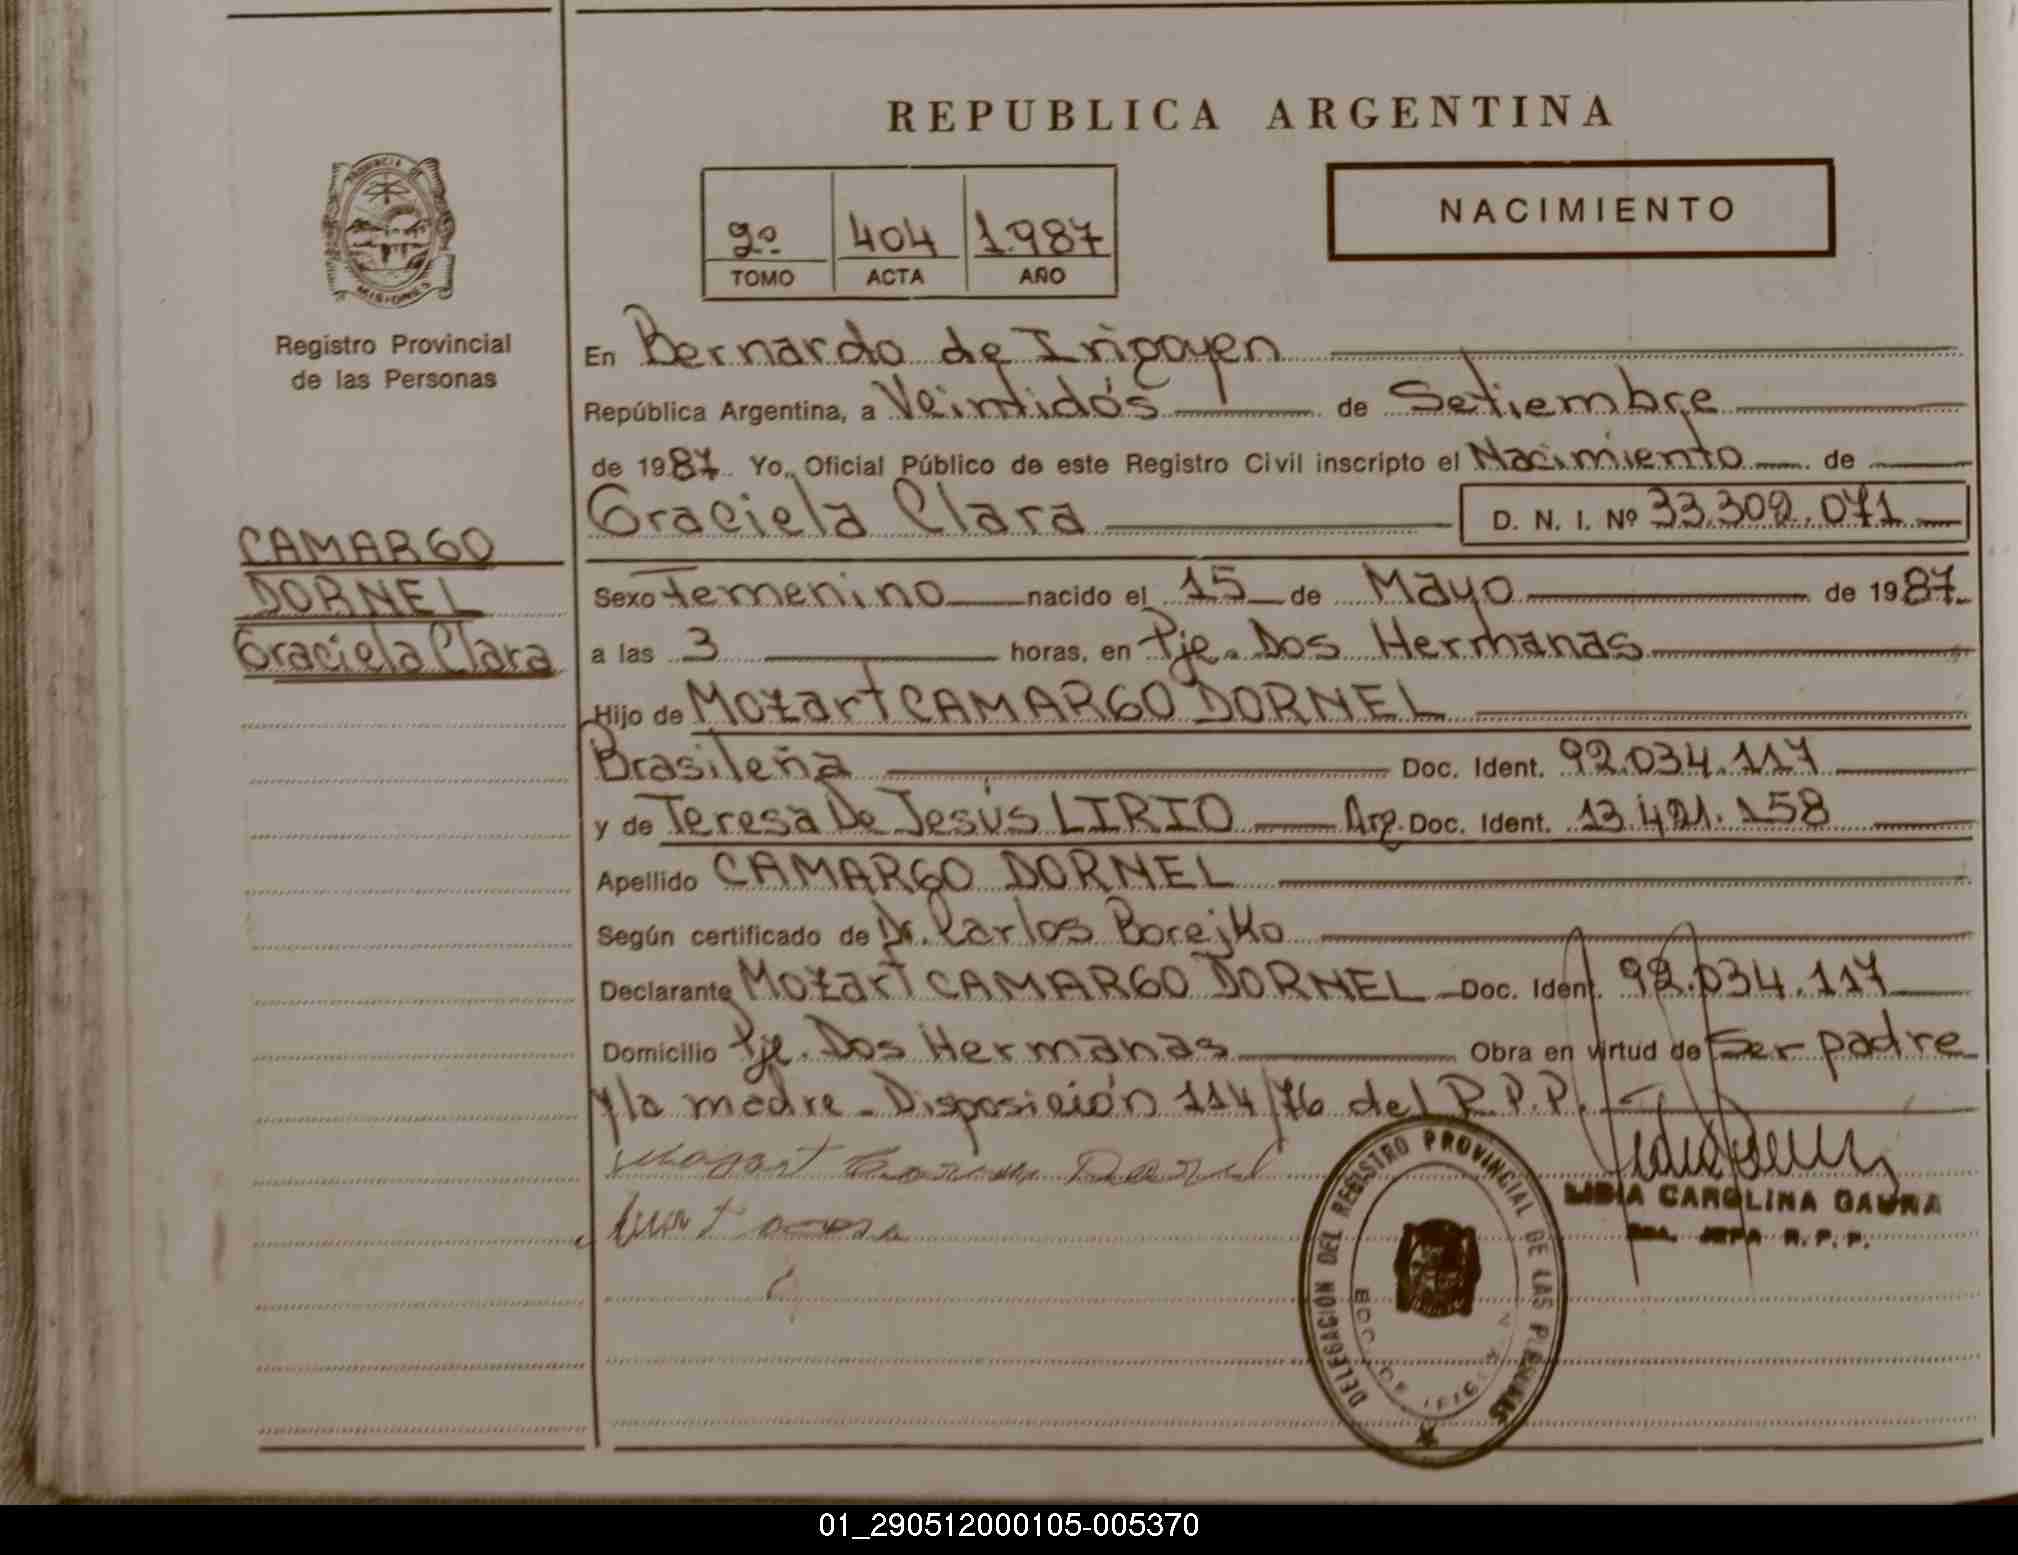 REPUBLICA ARGENTINA
PROVINCIA DE
MISIONES
Registro Provincial
de las Personas
2º 404 1.987
TOMO ACTA AÑO
NACIMIENTO
En Bernardo de Irigoyen
República Argentina, a Veintidós de Setiembre
de 1987 Yo, Oficial Público de este Registro Civil inscripto el Nacimiento de
Graciela Clara D. N. I. Nº 33.302.071
CAMARGO
DORNEL
Graciela Clara
Sexo Femenino nacido el 15 de Mayo de 1987
a las 3 horas, en Pje. Dos Hermanas
Hijo de Mozart CAMARGO DORNEL
Brasileña Doc. Ident. 92.034.117
y de Teresa De Jesús LIRIO Arg. Doc. Ident. 13.421.158
Apellido CAMARGO DORNEL
Según certificado de Dr. Carlos Borejko
Declarante Mozart CAMARGO DORNEL Doc. Ident. 92.034.117
Domicilio Pje. Dos Hermanas Obra en virtud de Ser padre
y la madre - Disposición 114/76 del R.P.P.
LIDIA CAROLINA GAUNA
JEFA R. P. P.
DELEGACIÓN DEL REGISTRO PROVINCIAL DE LAS PERSONAS
BDO. DE IRIGOYEN
01_290512000105-005370